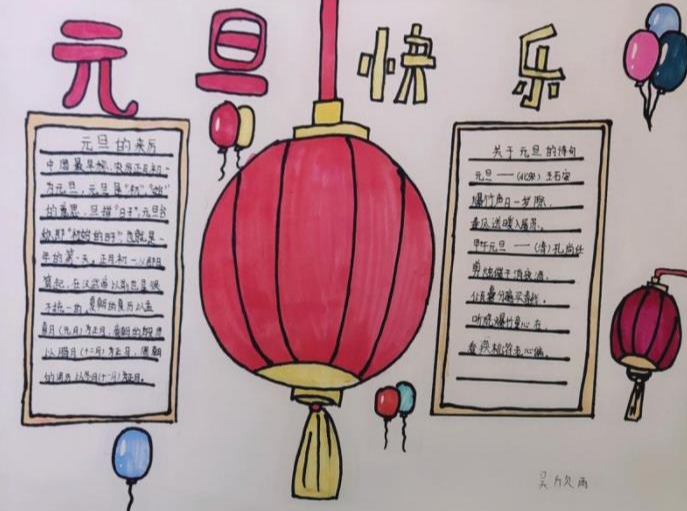 元旦快乐
元旦的来历
中国最早称农历正月初一
为元旦，元旦是"初""始"
的意思，旦指"日子"，元旦合
称即"初始的日子"，也就是一
年的第一天。正月初一从即日
算起，在汉武帝以前也是很
不统一的，夏朝的夏历以孟
喜月（元月）为正月，商朝的殷历
以腊月（十二月）为正月，周朝
的周历以冬月（十一月）为正月。
关于元旦的诗句
元旦——（北宋）王安石
爆竹声日一岁除，
春风送暖入屠苏。
甲午元旦——（清）孔尚任
剪烛催干消夜酒，
倾囊分遍买春钱。
听烧爆竹童心在，
看换桃符老心偏。
吴欣雨